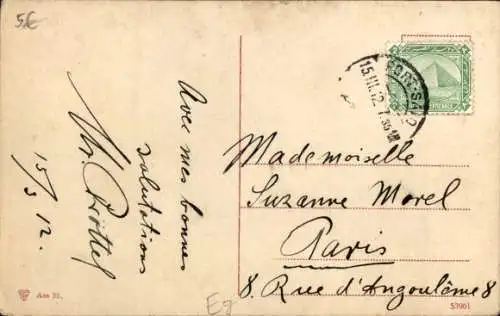 5€
Avec mes bonnes
salutations
15/3 12.
PORT-SAID
15.III.12. 7.30
Mademoiselle
Suzanne Morel
Paris
8. Rue d'Angoulême 8
Eg
Ans 35.
53961